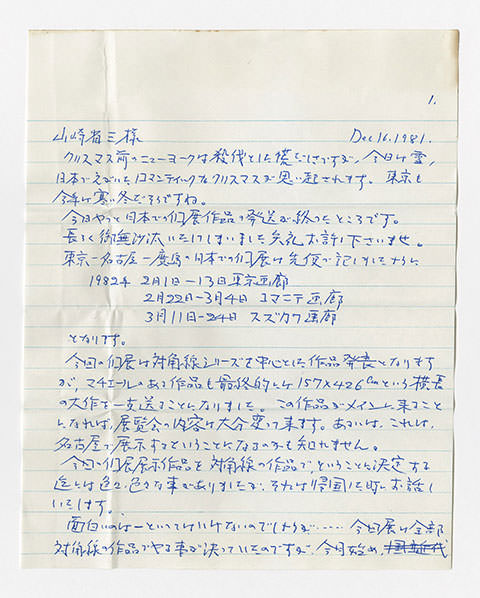 1.
山崎省三様 Dec 16. 1981.
クリスマス前のニューヨークは殺伐とした慌しさですが、今日は雪、
日本で考えていたロマンティックなクリスマスが思い起されます。東京も
今年は寒い冬だそうですね。
今日やっと日本での個展作品の発送が終ったところです。
長らく御無沙汰いたしました失礼お許し下さいませ。
東京―名古屋―鹿島の日本での個展は先便で記しましたように
1982年 2月1日―13日東京画廊
2月22日―3月4日 コマニテ画廊
3月11日―24日 スズカワ画廊
となります。
今回の個展は対角線シリーズを中心とした作品発表となります
が、マチエールのある作品も最終的には157×426cmという横長
の大作を一点送ることになりました。この作品がメインに来ること
になれば、展覧会の内容は大分変って来ます。あるいは、これは、
名古屋で展示するということになるのかも知れません。
今回の個展展示作品を対角線の作品で、ということに決定する
迄には色々、色々な事がありましたが、それは帰国した時にお話し
いたします。
面白いのは―といってはいけないのでしょうが‥‥‥今回展は全部
対角線の作品でやる事が決っていたのですが、今月始め、